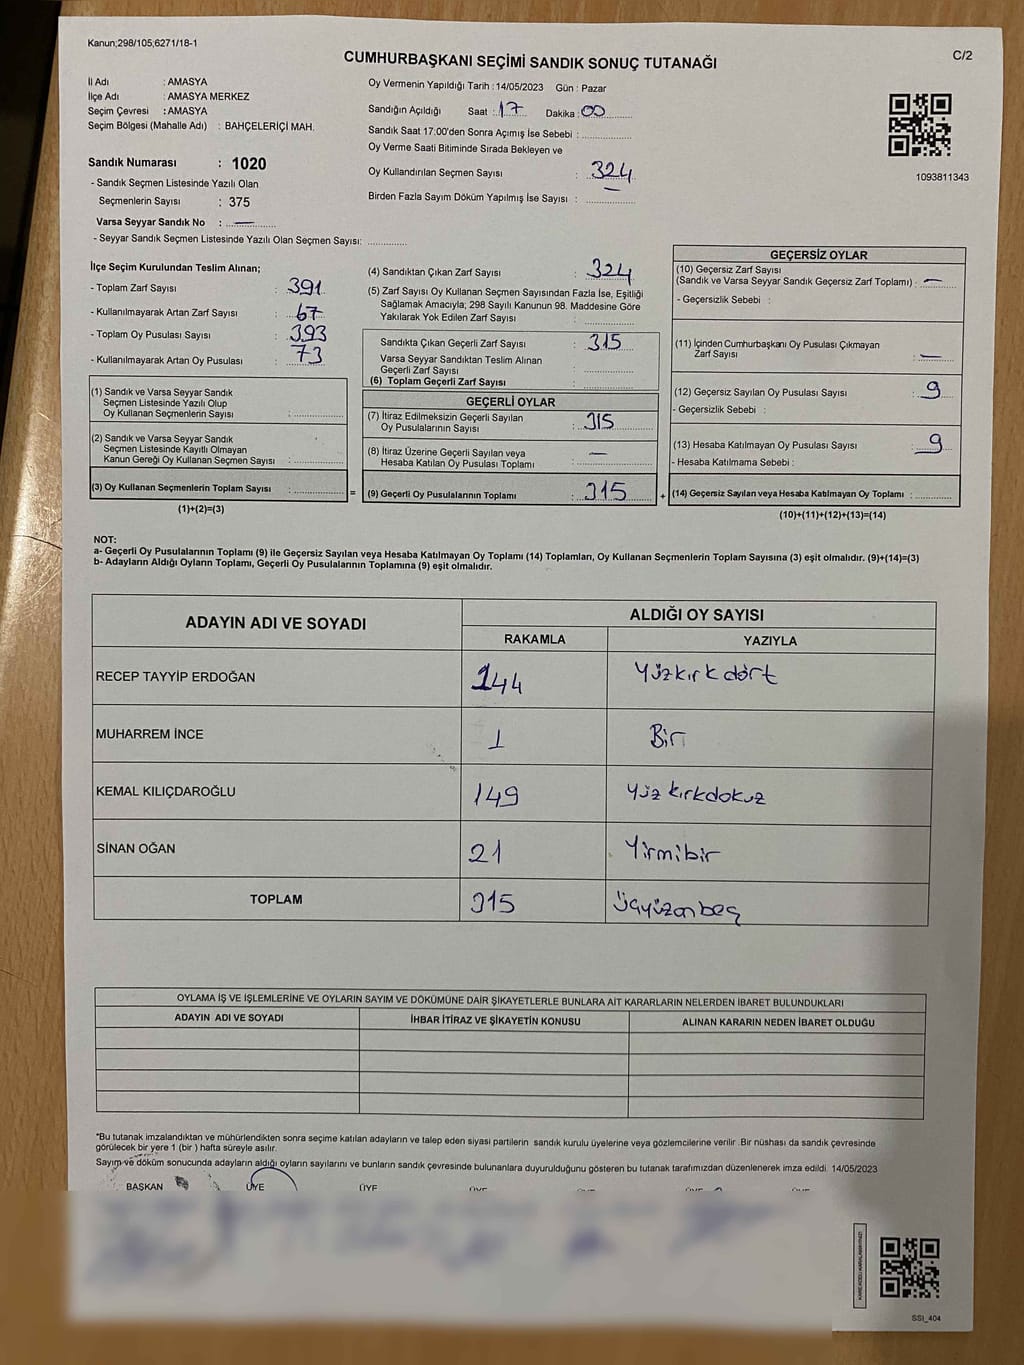 Kanun;298/105;6271/18-1
CUMHURBAŞKANI SEÇİMİ SANDIK SONUÇ TUTANAĞI
C/2
İl Adı : AMASYA
İlçe Adı : AMASYA MERKEZ
Seçim Çevresi : AMASYA
Seçim Bölgesi (Mahalle Adı) : BAHÇELERİÇİ MAH.
Sandık Numarası : 1020
- Sandık Seçmen Listesinde Yazılı Olan
Seçmenlerin Sayısı : 375
Varsa Seyyar Sandık No : —
- Seyyar Sandık Seçmen Listesinde Yazılı Olan Seçmen Sayısı: ............
Oy Vermenin Yapıldığı Tarih : 14/05/2023 Gün : Pazar
Sandığın Açıldığı Saat : 17 Dakika : 00
Sandık Saat 17:00'den Sonra Açımış İse Sebebi : ...............
Oy Verme Saati Bitiminde Sırada Bekleyen ve
Oy Kullandırılan Seçmen Sayısı : 324
Birden Fazla Sayım Döküm Yapılmış İse Sayısı : ...............
1093811343
İlçe Seçim Kurulundan Teslim Alınan;
- Toplam Zarf Sayısı : 391
- Kullanılmayarak Artan Zarf Sayısı : 67
- Toplam Oy Pusulası Sayısı : 393
- Kullanılmayarak Artan Oy Pusulası : 73
(1) Sandık ve Varsa Seyyar Sandık
Seçmen Listesinde Yazılı Olup
Oy Kullanan Seçmenlerin Sayısı : ...............
(2) Sandık ve Varsa Seyyar Sandık
Seçmen Listesinde Kayıtlı Olmayan
Kanun Gereği Oy Kullanan Seçmen Sayısı : ...............
(3) Oy Kullanan Seçmenlerin Toplam Sayısı : ............... =
(1)+(2)=(3)
(4) Sandıktan Çıkan Zarf Sayısı : 324
(5) Zarf Sayısı Oy Kullanan Seçmen Sayısından Fazla İse, Eşitliği
Sağlamak Amacıyla; 298 Sayılı Kanunun 98. Maddesine Göre
Yakılarak Yok Edilen Zarf Sayısı : ...............
Sandıkta Çıkan Geçerli Zarf Sayısı : 315
Varsa Seyyar Sandıktan Teslim Alınan
Geçerli Zarf Sayısı : ...............
(6) Toplam Geçerli Zarf Sayısı : ...............
GEÇERLİ OYLAR
(7) İtiraz Edilmeksizin Geçerli Sayılan
Oy Pusulalarının Sayısı : 315
(8) İtiraz Üzerine Geçerli Sayılan veya
Hesaba Katılan Oy Pusulası Toplamı : —
(9) Geçerli Oy Pusulalarının Toplamı : 315 +
GEÇERSİZ OYLAR
(10) Geçersiz Zarf Sayısı
(Sandık ve Varsa Seyyar Sandık Geçersiz Zarf Toplamı) : —
- Geçersizlik Sebebi :
(11) İçinden Cumhurbaşkanı Oy Pusulası Çıkmayan
Zarf Sayısı : —
(12) Geçersiz Sayılan Oy Pusulası Sayısı : 9
- Geçersizlik Sebebi :
(13) Hesaba Katılmayan Oy Pusulası Sayısı : 9
- Hesaba Katılmama Sebebi :
(14) Geçersiz Sayılan veya Hesaba Katılmayan Oy Toplamı : ............
(10)+(11)+(12)+(13)=(14)
NOT:
a- Geçerli Oy Pusulalarının Toplamı (9) ile Geçersiz Sayılan veya Hesaba Katılmayan Oy Toplamı (14) Toplamları, Oy Kullanan Seçmenlerin Toplam Sayısına (3) eşit olmalıdır. (9)+(14)=(3)
b- Adayların Aldığı Oyların Toplamı, Geçerli Oy Pusulalarının Toplamına (9) eşit olmalıdır.
ADAYIN ADI VE SOYADI
ALDIĞI OY SAYISI
RAKAMLA YAZIYLA
RECEP TAYYİP ERDOĞAN 144 Yüzkırk dört
MUHARREM İNCE 1 Bir
KEMAL KILIÇDAROĞLU 149 Yüz kırkdokuz
SİNAN OĞAN 21 Yirmibir
TOPLAM 315 Üçyüzonbeş
OYLAMA İŞ VE İŞLEMLERİNE VE OYLARIN SAYIM VE DÖKÜMÜNE DAİR ŞİKAYETLERLE BUNLARA AİT KARARLARIN NELERDEN İBARET BULUNDUKLARI
ADAYIN ADI VE SOYADI İHBAR İTİRAZ VE ŞİKAYETİN KONUSU ALINAN KARARIN NEDEN İBARET OLDUĞU
*Bu tutanak imzalandıktan ve mühürlendikten sonra seçime katılan adayların ve talep eden siyasi partilerin sandık kurulu üyelerine veya gözlemcilerine verilir .Bir nüshası da sandık çevresinde
görülecek bir yere 1 (bir ) hafta süreyle asılır.
Sayım ve döküm sonucunda adayların aldığı oyların sayılarını ve bunların sandık çevresinde bulunanlara duyurulduğunu gösteren bu tutanak tarafımızdan düzenlenerek imza edildi. 14/05/2023
BAŞKAN ÜYE ÜYE
SSI_404